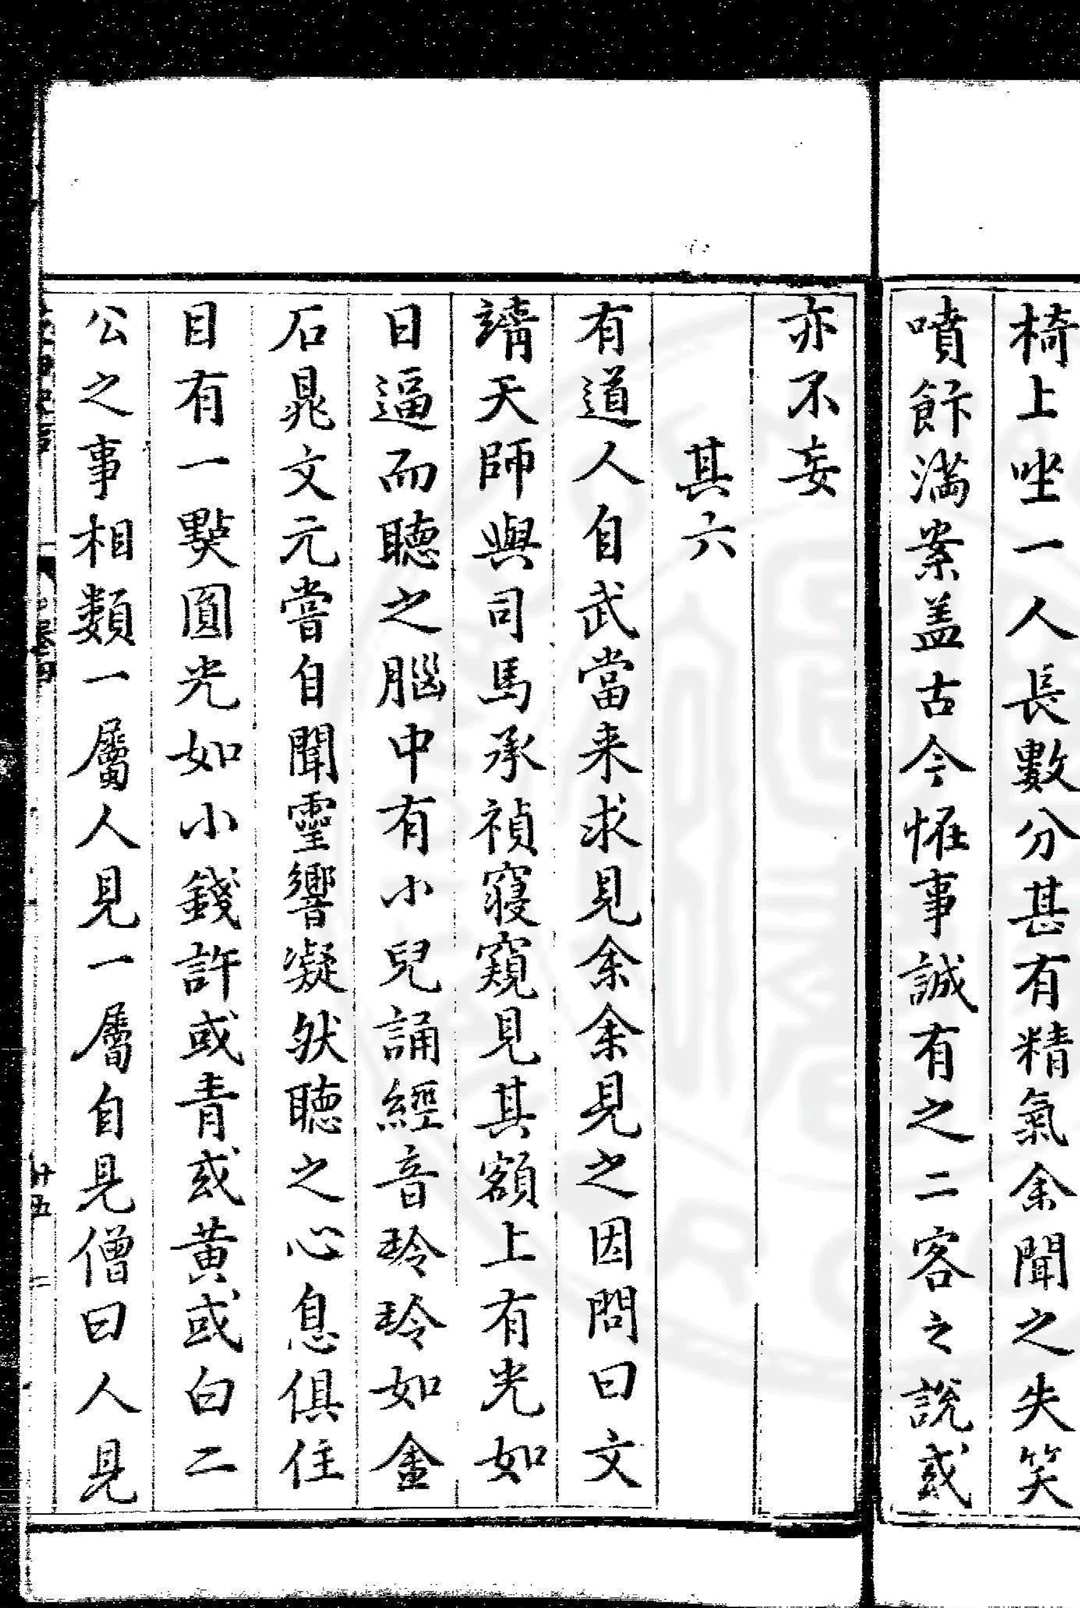 椅上坐一人長數分甚有精氣余聞之失笑
噴飰滿案盖古今恠事誠有之二客之說或
亦不妄
其六
有道人自武當来求見余余見之因問曰文
靖天師與司馬承禎寢窺見其額上有光如
日逼而聽之腦中有小兒誦經音玲玲如金
石晁文元嘗自聞靈響凝然聽之心息俱住
目有一㸃圓光如小錢許或青或黄或白二
公之事相類一屬人見一屬自見僧曰人見
卷四
廿五